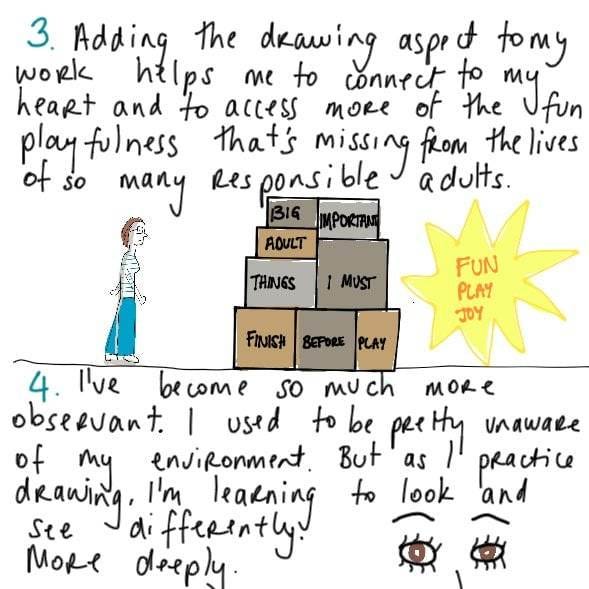 3. Adding the drawing aspect to my
work helps me to connect to my
heart and to access more of the fun
playfulness that's missing from the lives
of so many responsible adults.
BIG
IMPORTANT
ADULT
THINGS
I MUST
FINISH
BEFORE
PLAY
FUN
PLAY
JOY
4. I've become so much more
observant. I used to be pretty unaware
of my environment. But as I practice
drawing, I'm learning to look and
see differently.
More deeply.